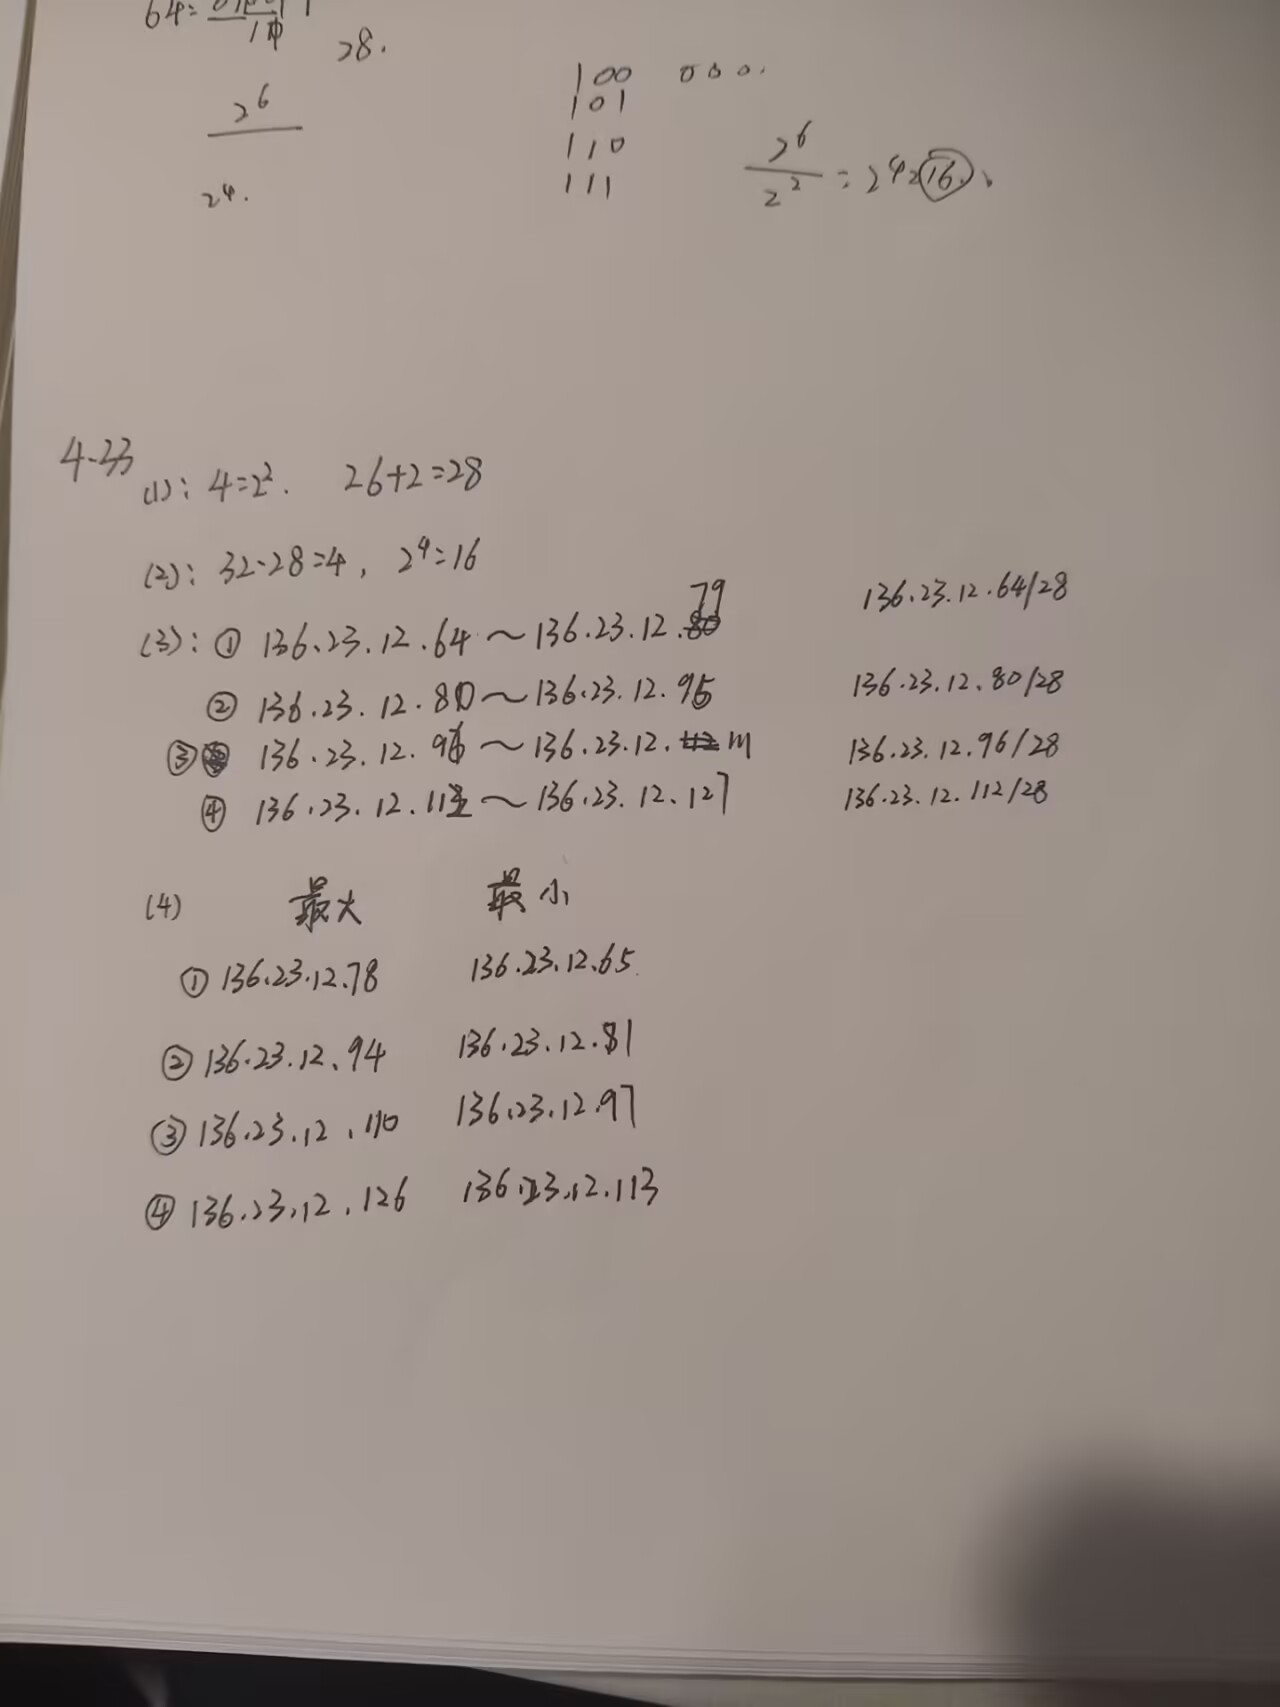 64=
28.
2^6
2^4.
100 000.
101
110
111
2^6/2^2=2^4=16.
4-33
(1): 4=2². 26+2=28
(2): 32-28=4, 2⁴=16
(3): ① 136.23.12.64~136.23.12.79 136.23.12.64/28
② 136.23.12.80~136.23.12.95 136.23.12.80/28
③ 136.23.12.96~136.23.12.111 136.23.12.96/28
④ 136.23.12.112~136.23.12.127 136.23.12.112/28
(4) 最大 最小
① 136.23.12.78 136.23.12.65
② 136.23.12.94 136.23.12.81
③ 136.23.12.110 136.23.12.97
④ 136.23.12.126 136.23.12.113